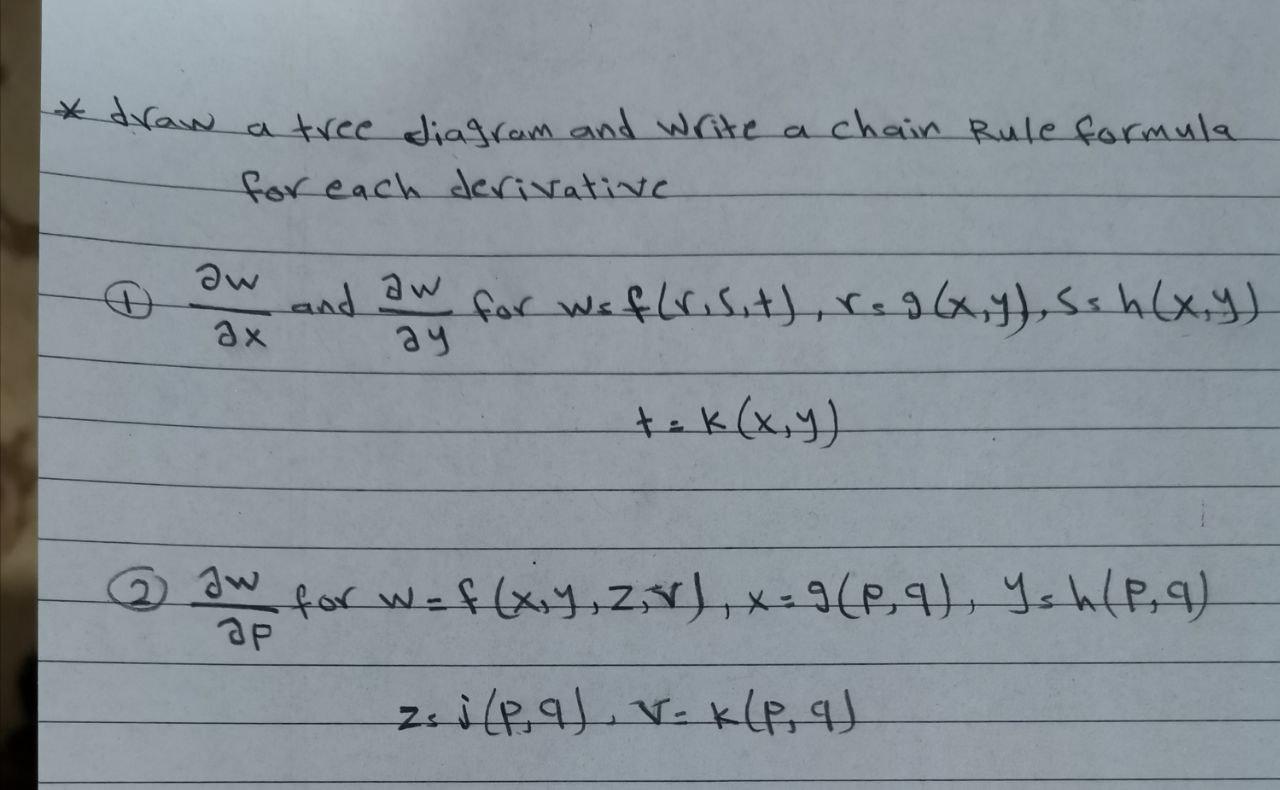 * draw a tree diagram and write a chain Rule formula
for each derivative
① ∂w/∂x and ∂w/∂y for w=f(r,s,t), r=g(x,y), s=h(x,y)
t=k(x,y)
② ∂w/∂p for w=f(x,y,z,v), x=g(p,q), y=h(p,q)
z=j(p,q), v=k(p,q)